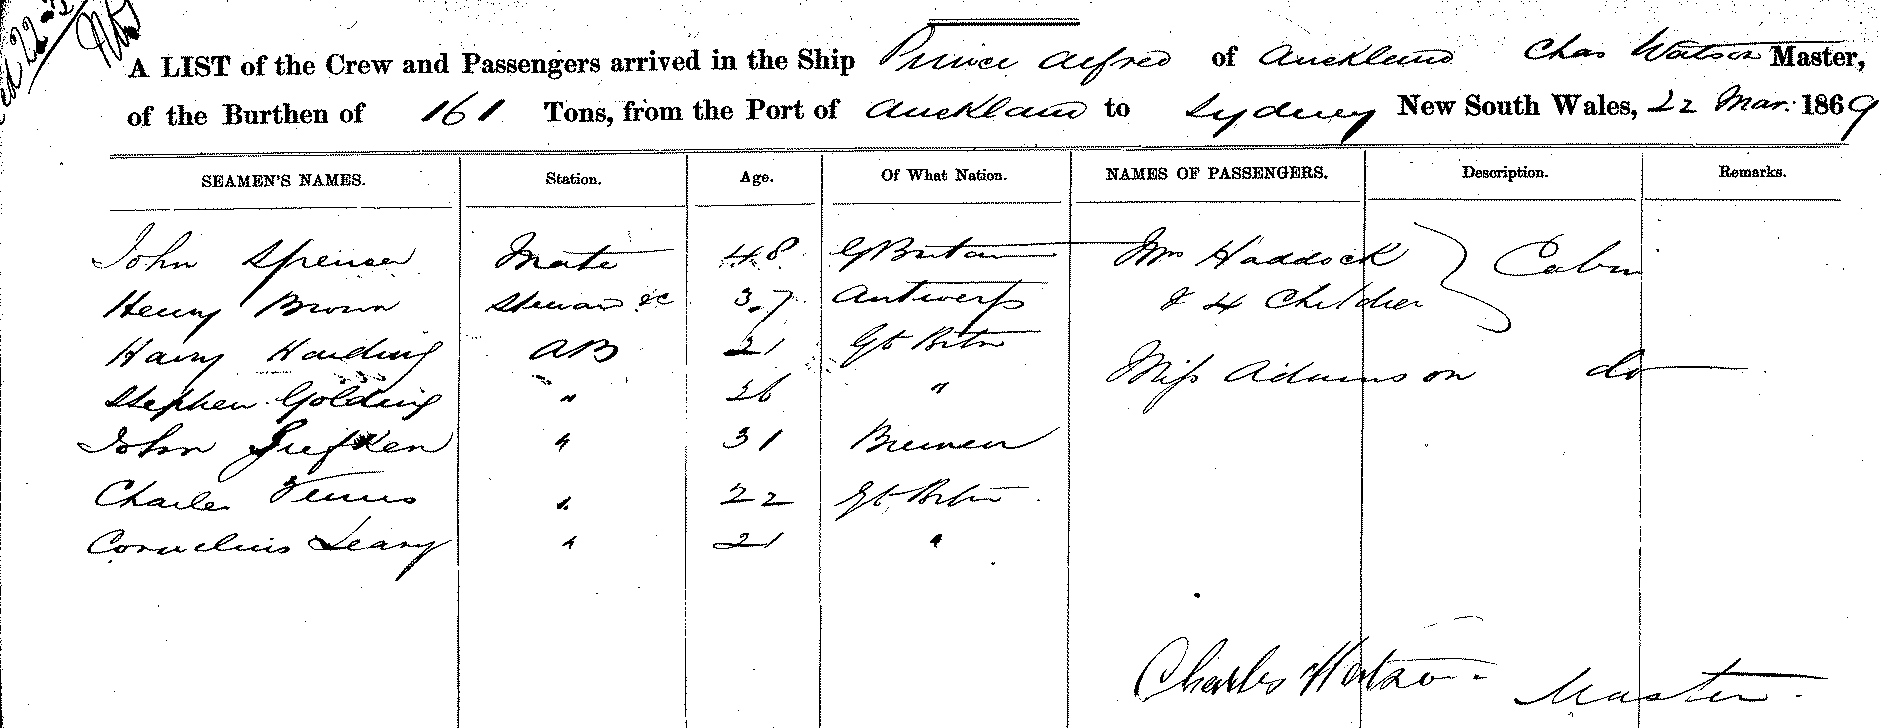 A LIST of the Crew and Passengers arrived in the Ship Prince Alfred of Auckland Chas Watson Master,
of the Burthen of 161 Tons, from the Port of Auckland to Sydney New South Wales, 22 Mar. 1869
SEAMEN'S NAMES. Station. Age. Of What Nation. NAMES OF PASSENGERS. Description. Remarks.
John Spencer Mate 48 G Britain Mrs Haddock Cabin
Henry Brown Steward &c 37 Antwerp & 4 Children
Harry Harding AB 21 Gt Britn
Miss Adamson do
Stephen Golding " 26 "
John " 31 Bremen
Charles " 22 Gt Britn
Cornelius Leary " 21 "
Charles Watson Master